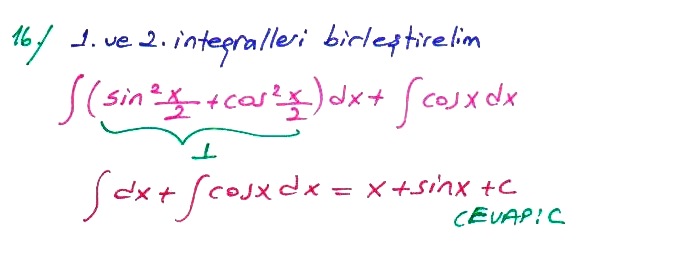 16./ 1. ve 2. integralleri birleştirelim
∫(sin²x/2 + cos²x/2)dx + ∫cosx dx
1
∫dx + ∫cosx dx = x + sinx + c
CEVAP: C